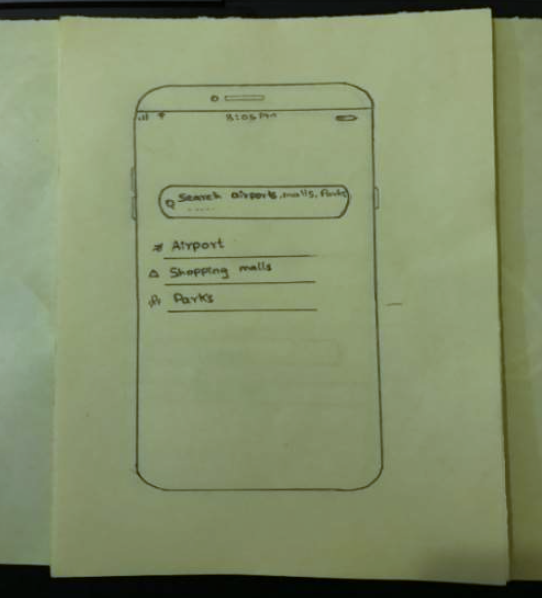 8:05 PM
Search airports, malls, Parks
.....
Airport
Shopping malls
Parks